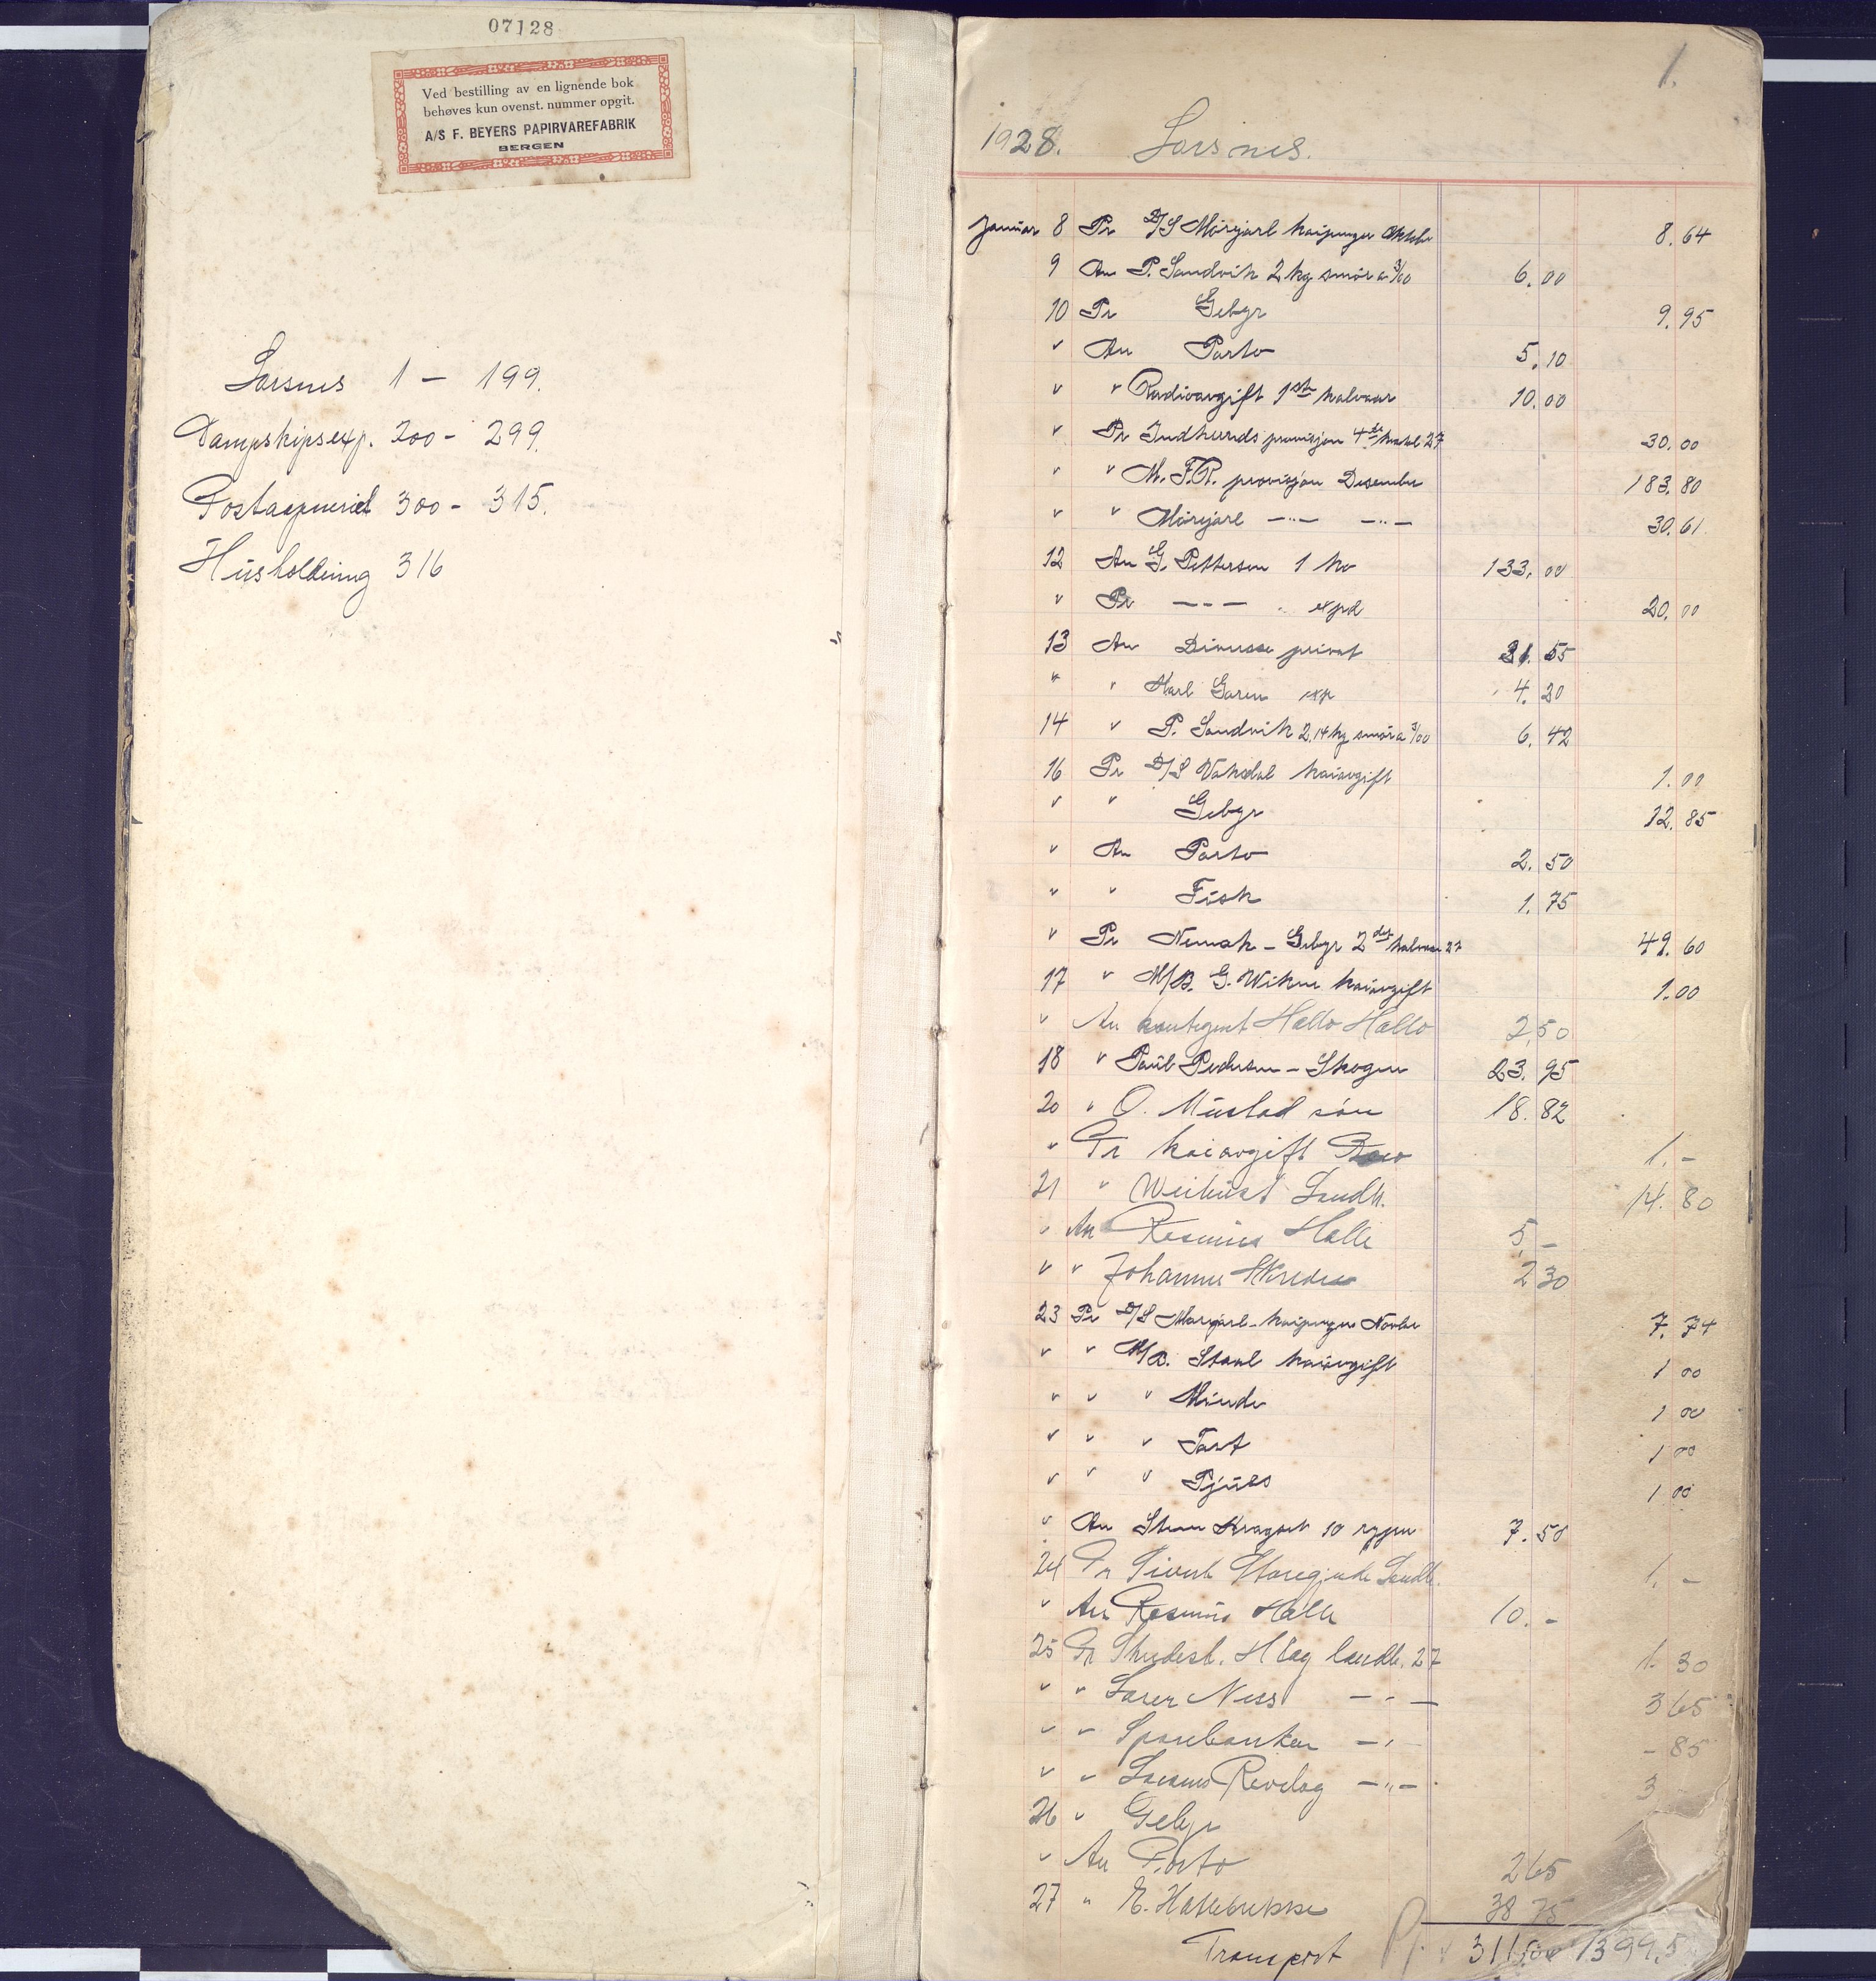 07128
Ved bestilling av en lignende bok
behøves kun ovenst. nummer opgit.
A/S F. BEYERS PAPIRVAREFABRIK
BERGEN
Larsnes 1 - 199.
Dampskipsexp. 200 - 299.
Postaapneriet 300 - 315.
Husholdning 316
1.
1928. Larsnes.
Januar 8 Pr D/S Mørejarl kaipenger Oktbr 8.64
9 An P. Sandvik 2 kg smør a 3/00 6.00
10 Pr Gebyr 9.95
" An Porto 5.10
" " Radioavgift 1ste halvaar 10.00
" Pr Indherreds provisjon 4de kvartal 27 30.00
" " M.F.R. provisjon Desember 183.80
" " Mørejarl -"- -"- 30.61
12 An G. Pettersen 1 ko 133.00
" Pr -"- expd 20.00
13 An Diverse privat 31.55
" " Karl Garen exp 4.20
14 " P. Sandvik 2,14 kg smør a 3/00 6.42
16 Pr D/S Vaksdal kaiavgift 1.00
" " Gebyr 12.85
" An Porto 2.50
" " Fisk 1.75
" Pr Nemak - Gebyr 2det halvaar 27 49.60
17 " M/B. G. Wiken kaiavgift 1.00
" An kontigent Hallo Hallo 2.50
18 " Paul Pedersen - Skogen 23.95
20 " O. Mustad søn 18.82
" Pr kaiavgift 1.-
21 " Landh. 14.80
" An Rasmus Halle 5.-
" " Johannes 2 30
23 Pr D/S Mørejarl - kaipenger Novbr 7.74
" " M/B. Staal kaiavgift 1 00
" " " Minde 1 00
" " " Tart 1 00
" " " 1 00
" An Steen Kragset 10 ryper 7.50
24 Pr Sivert 1.-
" An Rasmus Halle 10.-
25 Pr landh. 27 1.30
" " Larsnes -"- 3 65
" " Sparebanken -"- - 85
" " Larsnes Revelag -"- 3
26 " Gebyr
" An Porto 2 65
27 " E. 38 75
Transport